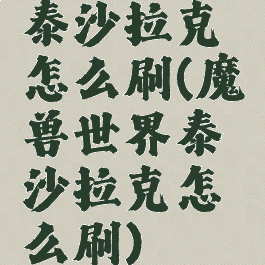 泰沙拉克
怎么刷(魔
兽世界泰
沙拉克怎
么刷)